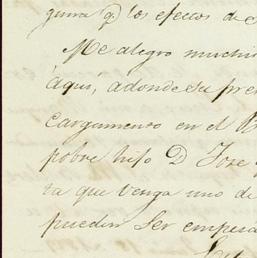 guna q.e los efectos de
Me alegro muchis
aqui, adonde su pre
cargamento en el B
pobre hijo D. Jose
ta que venga uno de
pueden ser empesa